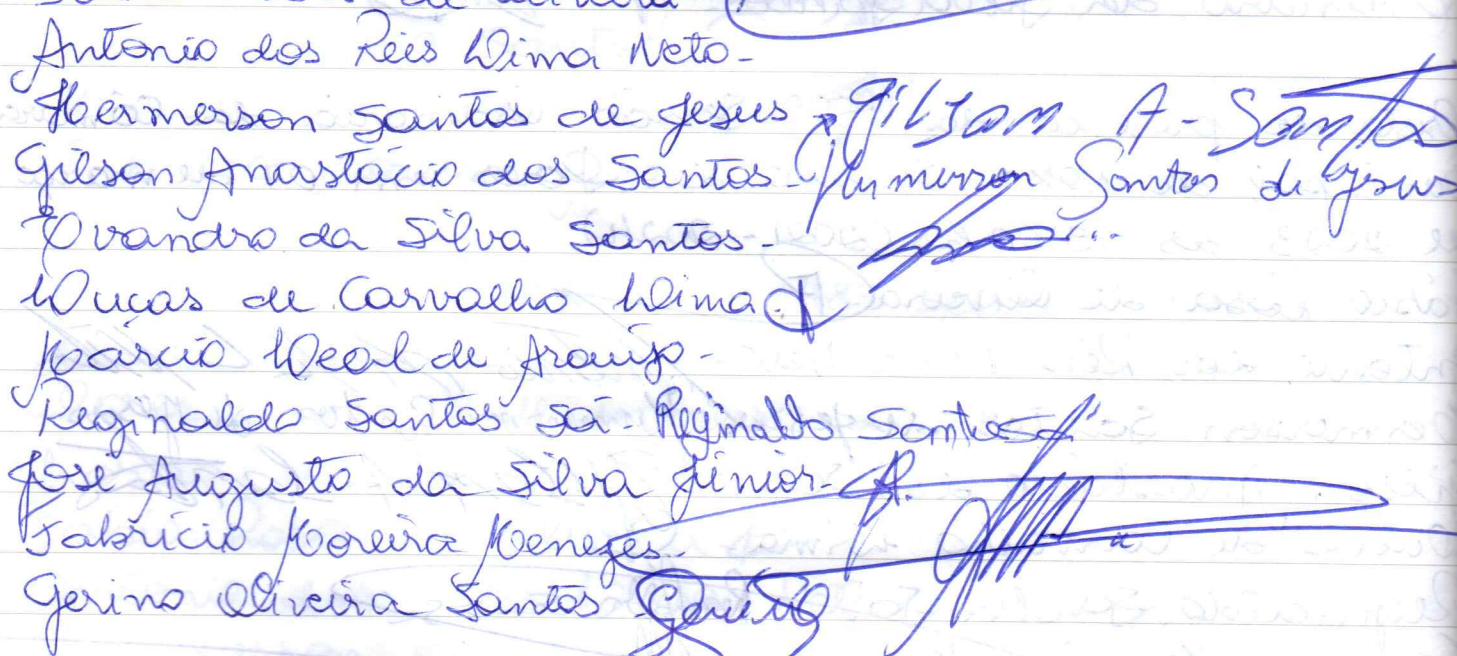 de Oliveira
Antonio dos Reis Lima Neto-
Hermerson Santos de Jesus - Gilson A - Santos
Gilson Anastácio dos Santos - Hermerson Santos de Jesus
Ovandro da Silva Santos-
Lucas de Carvalho Lima.
Márcio Leal de Araujo-
Reginaldo Santos Sá- Reginaldo Santos Sá
José Augusto da Silva Júnior-
Fabrício Moreira Menezes-
Gerino Oliveira Santos Gerino